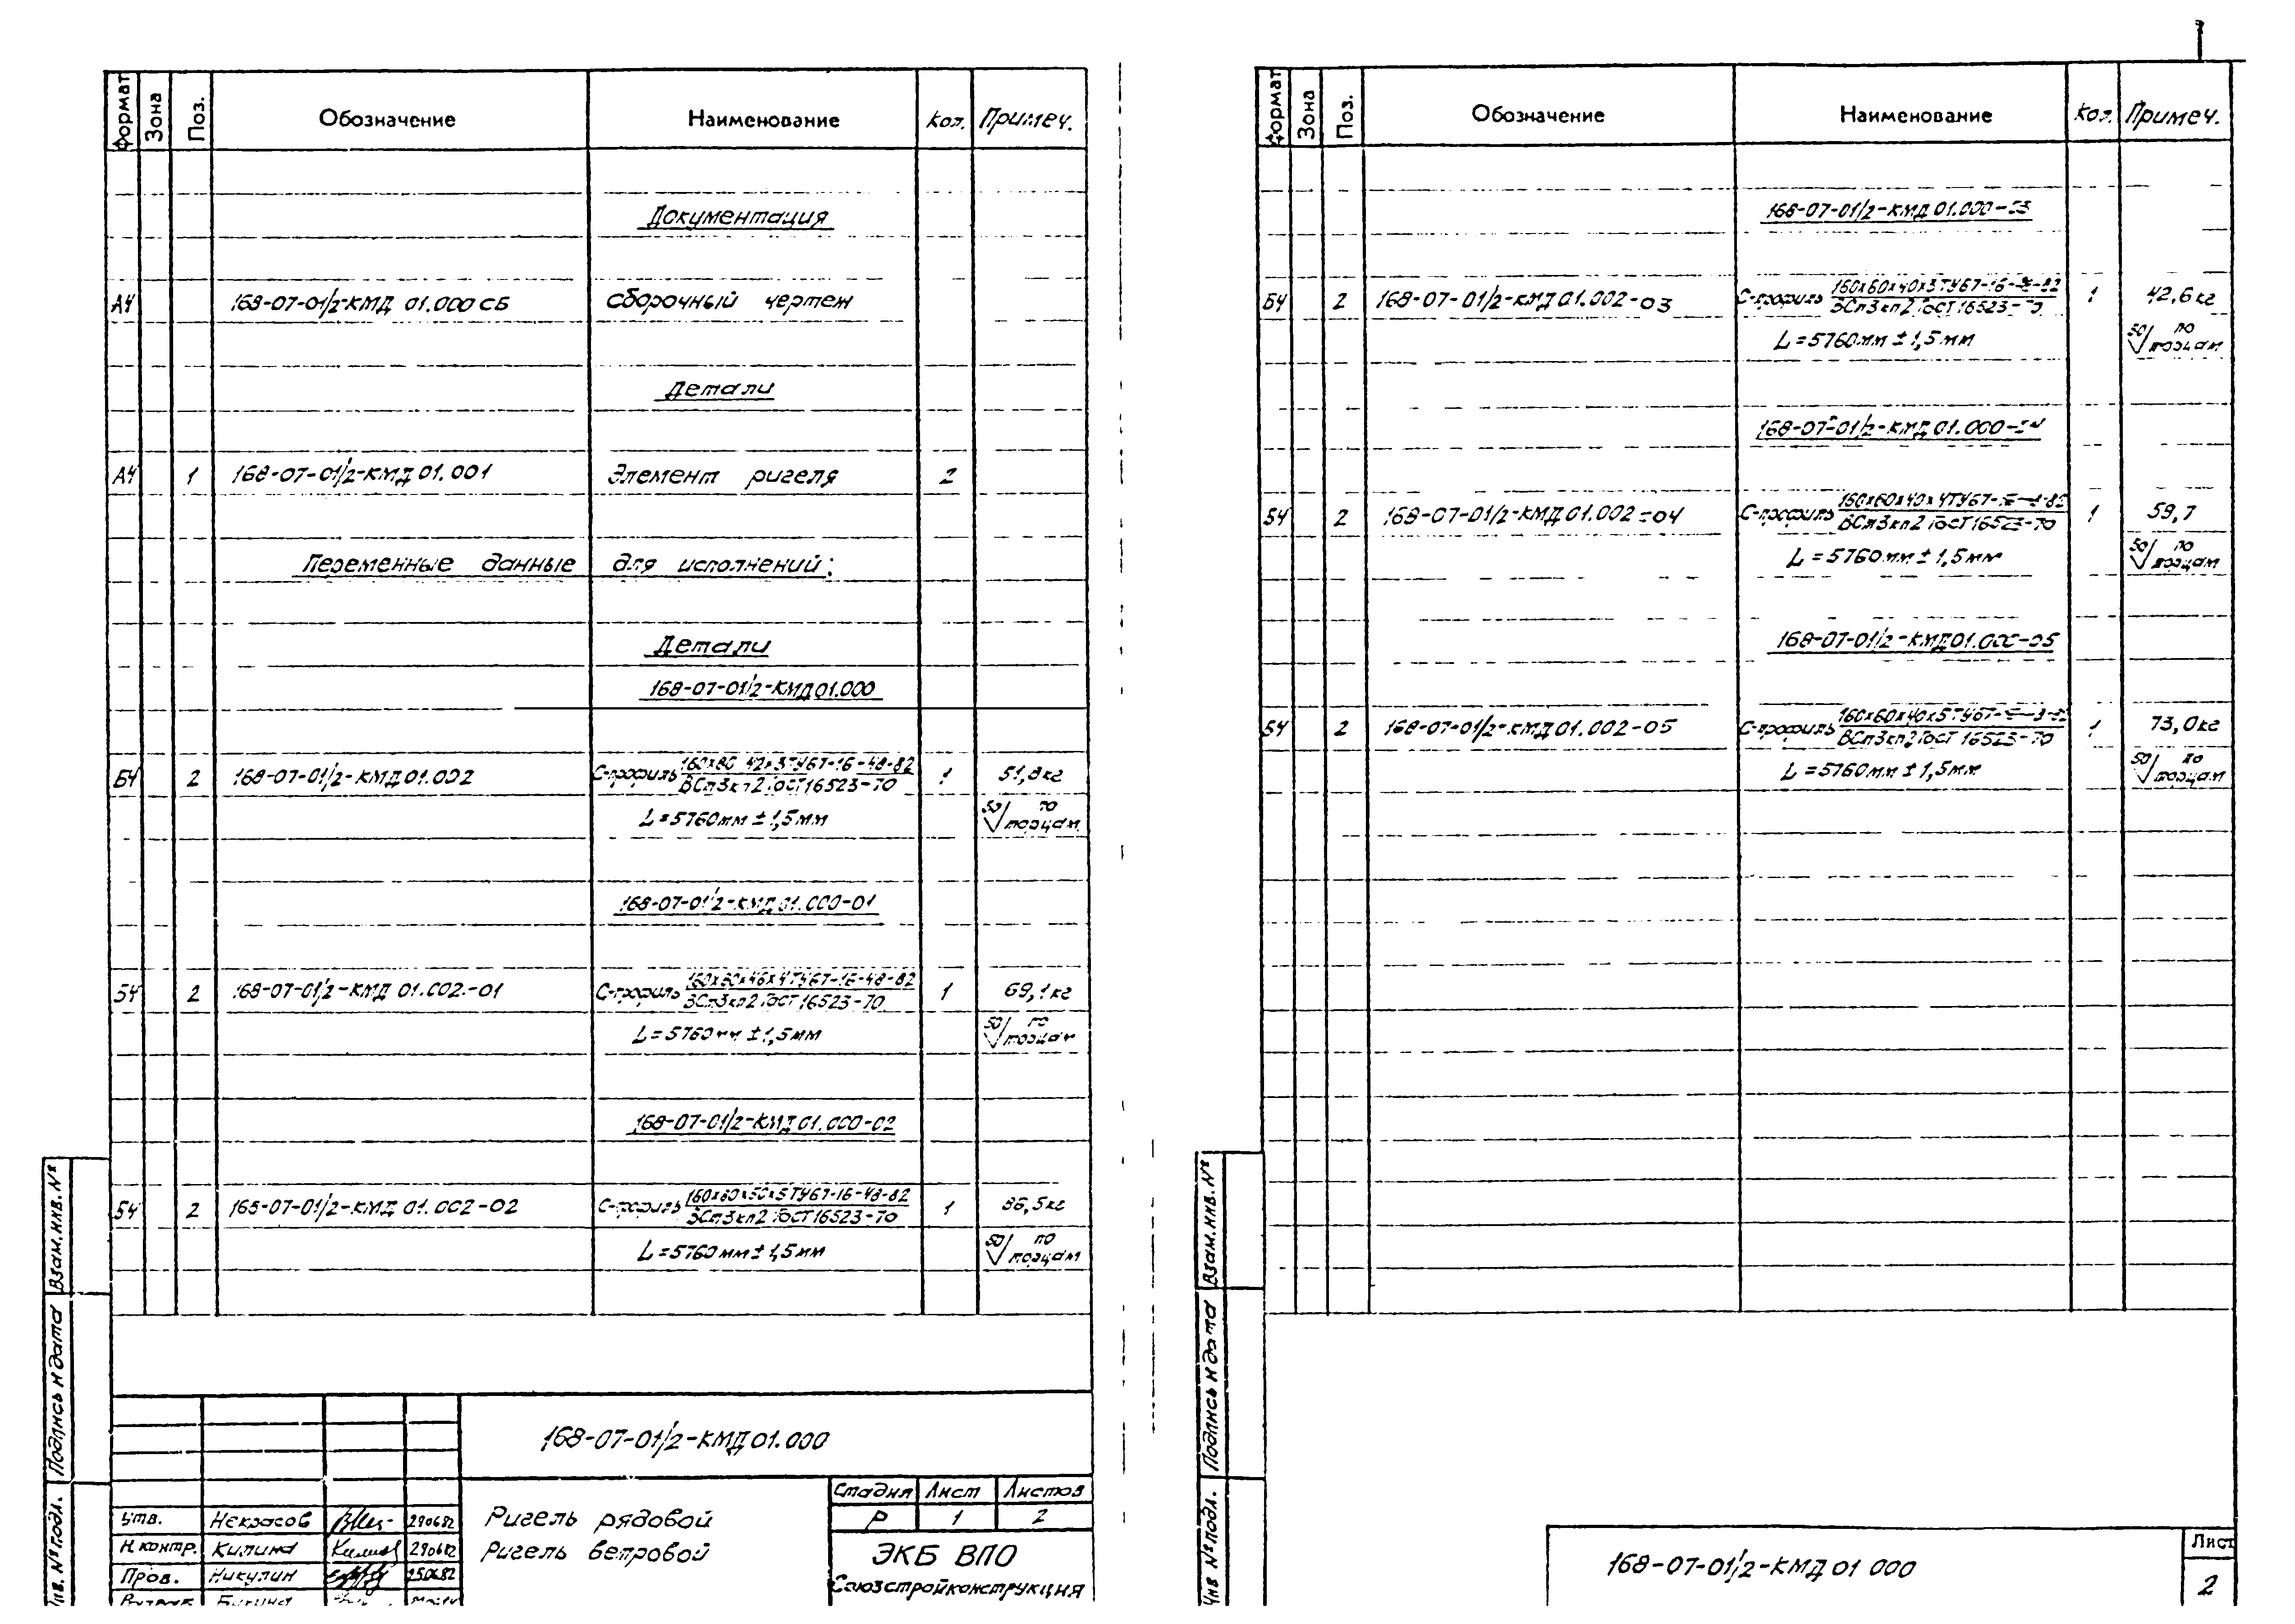 Формат Зона Поз. Обозначение Наименование Кол. Примеч.
Документация
А4 168-07-01/2-КМД 01.000 СБ Сборочный чертеж
Детали
А4 1 168-07-01/2-КМД 01.001 Элемент ригеля 2
Переменные данные для исполнений:
Детали
168-07-01/2-КМД 01.000
БЧ 2 168-07-01/2-КМД 01.002 С-профиль ТУ67-16-48-82 1 51,8кг
ВСт3кп2 ГОСТ 16523-70
L=5760мм ± 1,5мм 50/ по
торцам
168-07-01/2-КМД 01.000-01
БЧ 2 168-07-01/2-КМД 01.002-01 С-профиль ТУ67-16-48-82 1 69,1кг
ВСт3кп2 ГОСТ 16523-70
L=5760мм ± 1,5мм 50/ по
торцам
168-07-01/2-КМД 01.000-02
БЧ 2 168-07-01/2-КМД 01.002-02 С-профиль 160х80х50х5 ТУ67-16-48-82 1 86,5кг
ВСт3кп2 ГОСТ 16523-70
L=5760мм ± 1,5мм 50/ по
торцам
168-07-01/2-КМД 01.000
Стадия Лист Листов
Р 1 2
Утв. Некрасов 290682
Н.контр. Килина 290682
Пров. Никулин 250682
Ригель рядовой
Ригель ветровой
ЭКБ ВПО
Союзстройконструкция
Взам.инв.№
Подпись и дата
Инв. № подл.
Формат Зона Поз. Обозначение Наименование Кол. Примеч.
168-07-01/2-КМД 01.000-03
БЧ 2 168-07-01/2-КМД 01.002-03 С-профиль 160х60х40х3 1 42,6кг
ВСт3кп2 ГОСТ 16523-70
L=5760мм ± 1,5мм 50/ по
торцам
168-07-01/2-КМД 01.000-04
БЧ 2 168-07-01/2-КМД 01.002-04 С-профиль 160х60х40х4 1 59,7
ВСт3кп2 ГОСТ 16523-70
L=5760мм ± 1,5мм 50/ по
торцам
168-07-01/2-КМД 01.000-05
БЧ 2 168-07-01/2-КМД 01.002-05 С-профиль 160х60х40х5 1 73,0кг
ВСт3кп2 ГОСТ 16523-70
L=5760мм ± 1,5мм 50/ по
торцам
Взам.инв.№
Подпись и дата
Инв № подл.
168-07-01/2-КМД 01 000
Лист
2